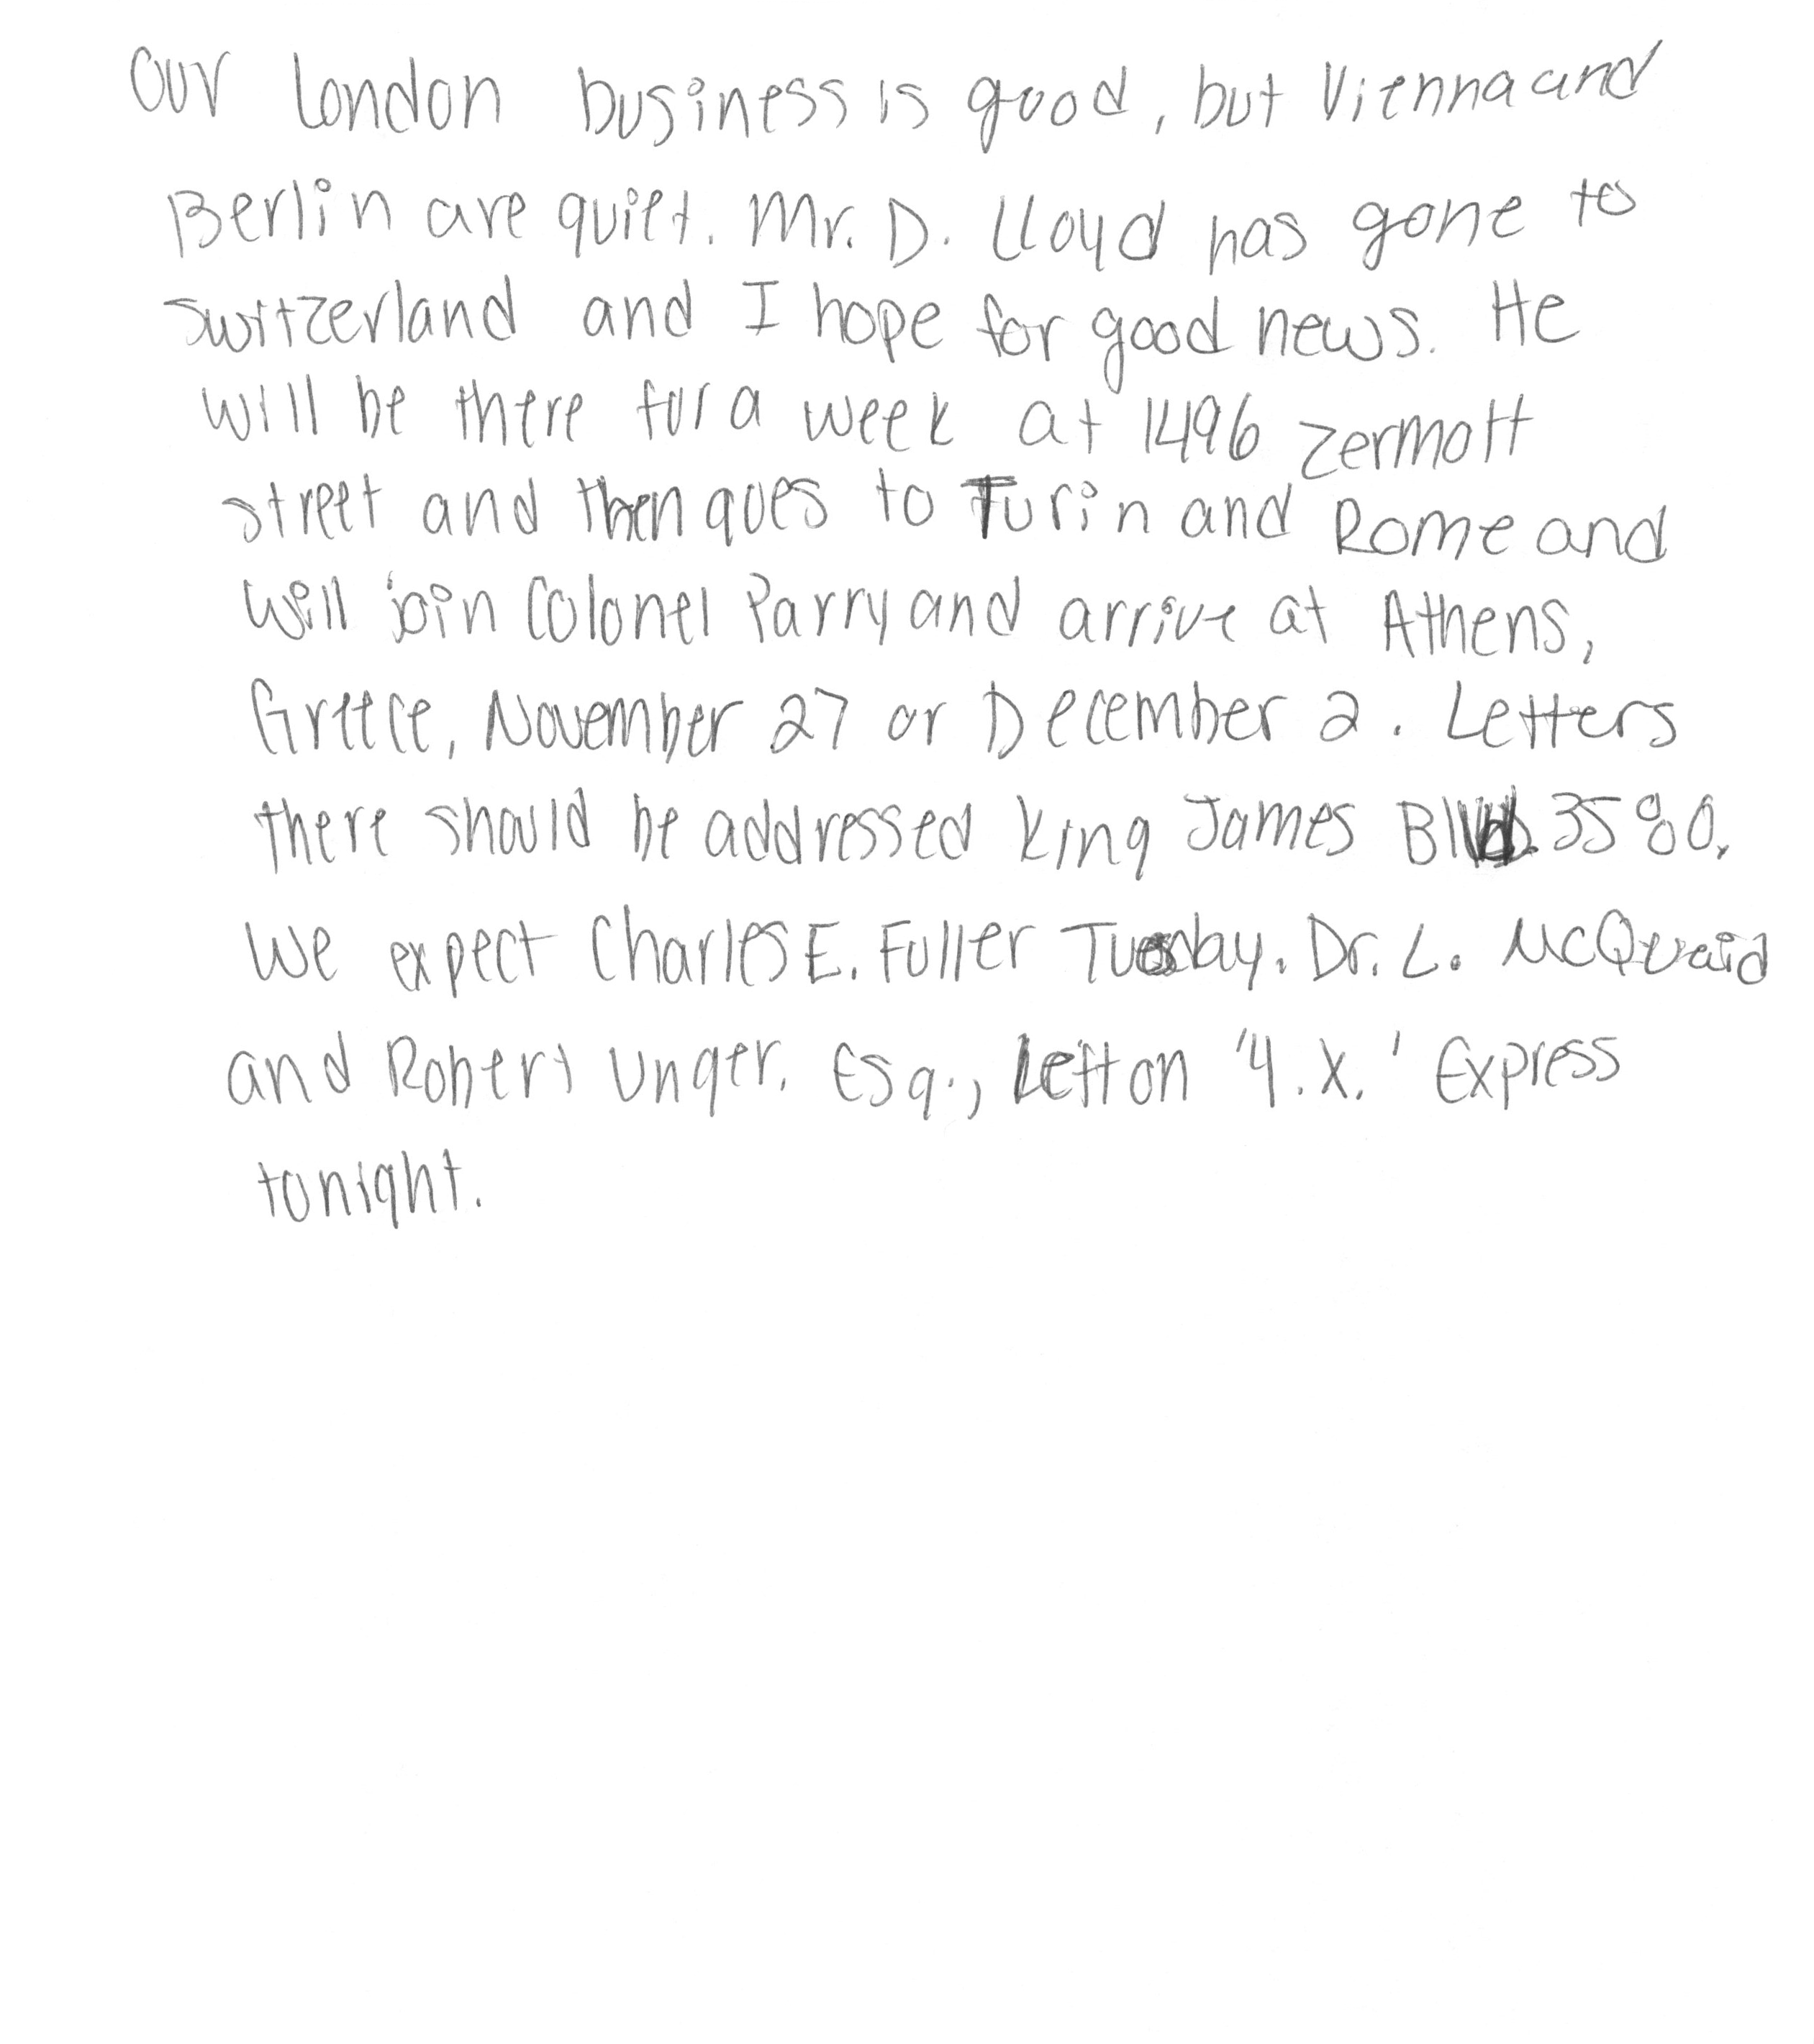 Our London business is good, but Vienna and
Berlin are quiet. Mr. D. Lloyd has gone to
Switzerland and I hope for good news. He
will be there for a week at 1496 Zermott
street and then goes to Turin and Rome and
will join Colonel Parry and arrive at Athens,
Greece, November 27 or December 2. Letters
there should be addressed King James Blvd. 3580.
We expect Charles E. Fuller Tuesday. Dr. L. McQuaid
and Robert Unger. Esq., Left on '4.X.' Express
tonight.